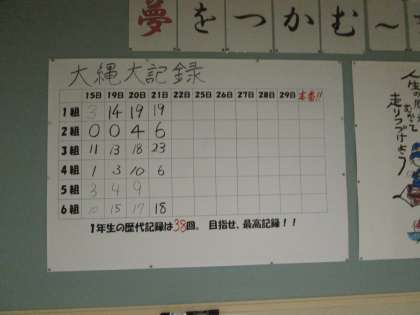 夢をつかむ～
大縄大記録
15日 19日 20日 21日 22日 25日 26日 27日 28日 29日 本番!!
1組 3 14 19 19
2組 0 0 4 6
3組 11 13 18 23
4組 1 3 10 6
5組 3 4 9
6組 10 15 17 18
1年生の歴代記録は38回。 目指せ、最高記録！！
人生の
走りつづけよう